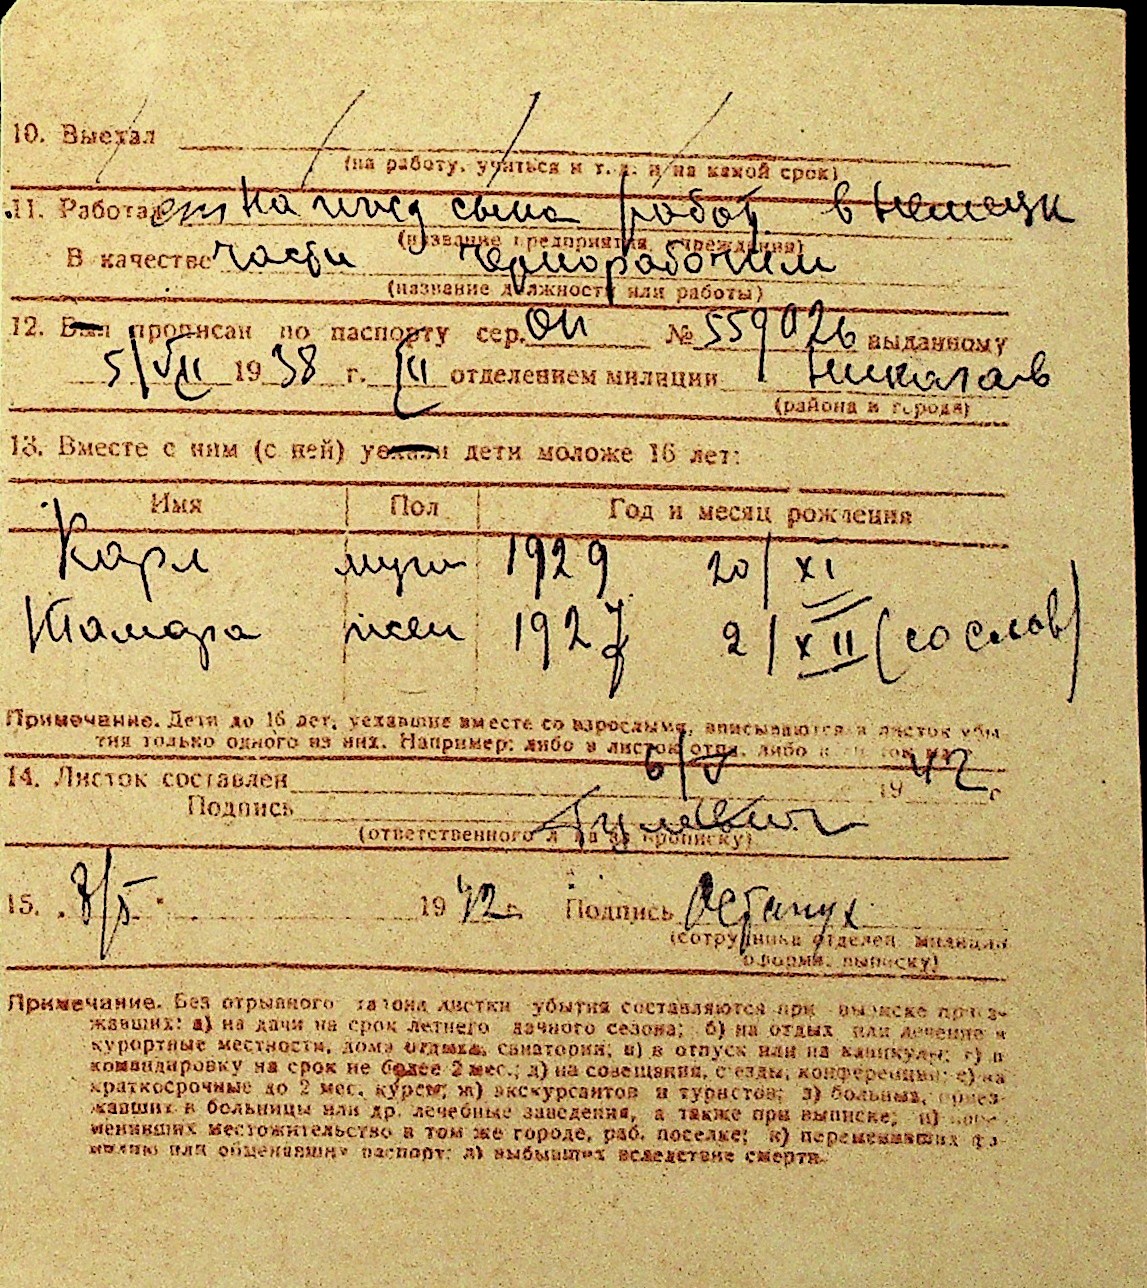 10. Выехал
(на работу, учиться и т. д. и на какой срок)
11. Работает на ижд сына работ в немецк
(название предприятия, учреждения)
В качестве части чернорабочим
(название должности или работы)
12. Был прописан по паспорту сер. ОП № 559026 выданному
5/VII 1938 г. II отделением милиции Николаев
(района и города)
13. Вместе с ним (с ней) уехали дети моложе 16 лет:
Имя Пол Год и месяц рождения
Карл муж 1929 20/XI
Тамара жен 1927 2/XII (со слов)
Примечание. Дети до 16 лет, уехавшие вместе со взрослыми, вписываются в листок убы-
тия только одного из них. Например: либо в листок отца, либо в листок
14. Листок составлен 6/V 1942 г
Подпись
(ответственного за прописку)
15. 8/V 1942 г. Подпись
(сотрудника отделен. милиции
оформ. выписку)
Примечание. Без отрывного талона листки убытия составляются при выписке приез-
жавших: а) на дачи на срок летнего дачного сезона; б) на отдых или лечение в
курортные местности, дома отдыха, санатории; в) в отпуск или на каникулы; г) в
командировку на срок не более 2 мес.; д) на совещания, с'езды, конференции; е) на
краткосрочные до 2 мес. курсы; ж) экскурсантов и туристов; з) больных, приез-
жавших в больницы или др. лечебные заведения, а также при выписке; и) пере-
менивших местожительство в том же городе, раб. поселке; к) переменивших фа-
милию или обменявших паспорт; л) выбывших вследствие смерти.